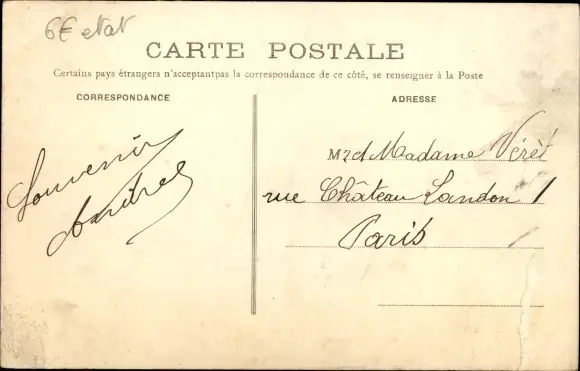 6€ etat
CARTE POSTALE
Certains pays étrangers n'acceptantpas la correspondance de ce côté, se renseigner à la Poste
CORRESPONDANCE
ADRESSE
Souvenir
M
Madame Vérèt
rue Château Landon 1
Paris